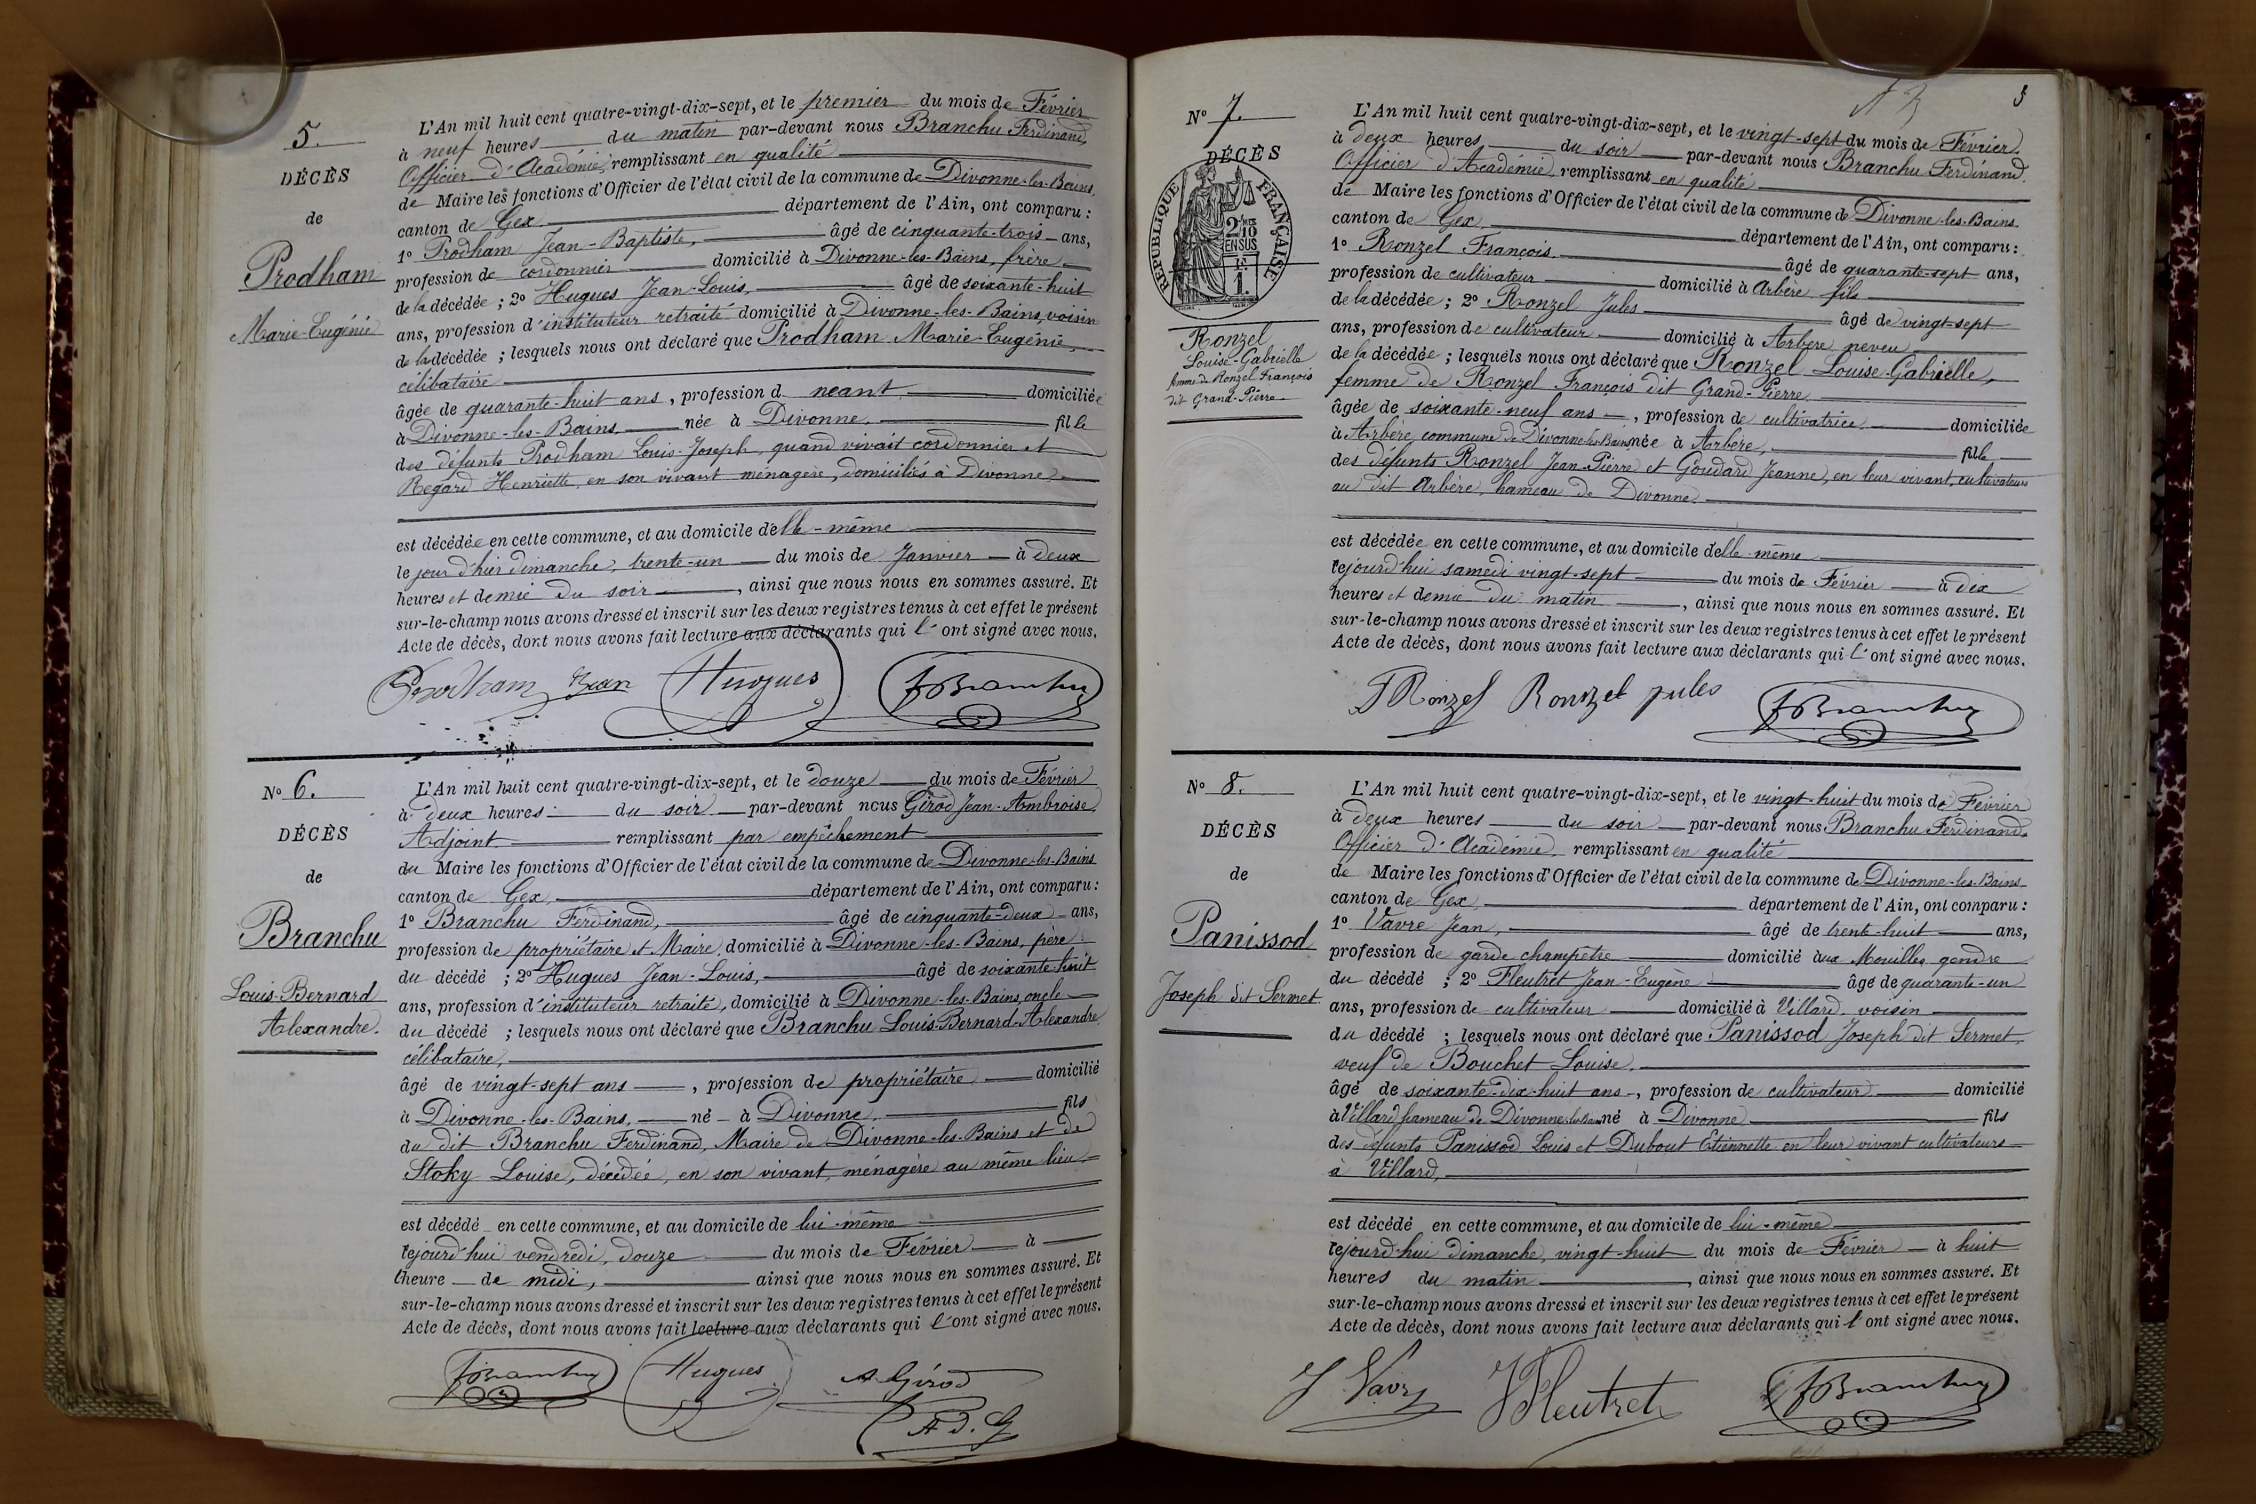 5.
DÉCÈS
de
Prodham
Marie-Eugénie
L'An mil huit cent quatre-vingt-dix-sept, et le premier du mois de Février
à neuf heures du matin par-devant nous Branchu Ferdinand,
Officier d'Académie, remplissant en qualité
de Maire les fonctions d'Officier de l'état civil de la commune de Divonne-les-Bains
canton de Gex département de l'Ain, ont comparu :
1º Prodham Jean-Baptiste, âgé de cinquante-trois ans,
profession de cordonnier domicilié à Divonne-les-Bains, frère
de la décédée ; 2º Hugues Jean-Louis, âgé de soixante-huit
ans, profession d'instituteur retraité domicilié à Divonne-les-Bains, voisin
de la décédée ; lesquels nous ont déclaré que Prodham Marie-Eugénie,
célibataire
âgée de quarante-huit ans, profession d neant domiciliée
à Divonne-les-Bains née à Divonne, fille
des défunts Prodham Louis-Joseph, quand vivait cordonnier et
Regard Henriette, en son vivant ménagère, domiciliés à Divonne
est décédée en cette commune, et au domicile d'elle-même
le jour d'hier dimanche, trente-un du mois de Janvier à deux
heures et demie du soir, ainsi que nous nous en sommes assuré. Et
sur-le-champ nous avons dressé et inscrit sur les deux registres tenus à cet effet le présent
Acte de décès, dont nous avons fait lecture aux déclarants qui l'ont signé avec nous.
Prodham Jean Hugues F Branchu
Nº 6.
DÉCÈS
de
Branchu
Louis-Bernard
Alexandre.
L'An mil huit cent quatre-vingt-dix-sept, et le douze du mois de Février
à deux heures du soir par-devant nous Girod Jean-Ambroise,
Adjoint remplissant par empêchement
du Maire les fonctions d'Officier de l'état civil de la commune de Divonne-les-Bains
canton de Gex, département de l'Ain, ont comparu :
1º Branchu Ferdinand, âgé de cinquante-deux ans,
profession de propriétaire et Maire, domicilié à Divonne-les-Bains, père
du décédé ; 2º Hugues Jean-Louis, âgé de soixante-huit
ans, profession d'instituteur retraité, domicilié à Divonne-les-Bains, oncle
du décédé ; lesquels nous ont déclaré que Branchu Louis-Bernard-Alexandre
célibataire,
âgé de vingt-sept ans, profession de propriétaire domicilié
à Divonne-les-Bains, né à Divonne, fils
du dit Branchu Ferdinand, Maire de Divonne-les-Bains et de
Stoky Louise, décédée, en son vivant, ménagère au même lieu
est décédé en cette commune, et au domicile de lui-même
cejourd'hui vendredi, douze du mois de Février à
l'heure de midi, ainsi que nous nous en sommes assuré. Et
sur-le-champ nous avons dressé et inscrit sur les deux registres tenus à cet effet le présent
Acte de décès, dont nous avons fait lecture aux déclarants qui l'ont signé avec nous.
F Branchu Hugues A Girod
AD. G
5
Nº 7.
DÉCÈS
RÉPUBLIQUE FRANÇAISE
2/10 EN SUS
1.
Ronzel
Louise-Gabrielle
femme de Ronzel François
dit Grand-Pierre
L'An mil huit cent quatre-vingt-dix-sept, et le vingt-sept du mois de Février
à deux heures du soir par-devant nous Branchu Ferdinand.
Officier d'Académie, remplissant en qualité
de Maire les fonctions d'Officier de l'état civil de la commune de Divonne-les-Bains
canton de Gex, département de l'Ain, ont comparu :
1º Ronzel François âgé de quarante-sept ans,
profession de cultivateur domicilié à Arbère fils
de la décédée ; 2º Ronzel Jules âgé de vingt-sept
ans, profession de cultivateur domicilié à Arbère neveu
de la décédée ; lesquels nous ont déclaré que Ronzel Louise-Gabrielle,
femme de Ronzel François dit Grand-Pierre
âgée de soixante-neuf ans, profession de cultivatrice domiciliée
à Arbère commune de Divonne-les-Bains née à Arbère, fille
des défunts Ronzel Jean-Pierre et Goudard Jeanne, en leur vivant, cultivateurs
au dit Arbère, hameau de Divonne.
est décédée en cette commune, et au domicile d'elle-même
cejourd'hui samedi vingt-sept du mois de Février à dix
heures et demie du matin, ainsi que nous nous en sommes assuré. Et
sur-le-champ nous avons dressé et inscrit sur les deux registres tenus à cet effet le présent
Acte de décès, dont nous avons fait lecture aux déclarants qui l'ont signé avec nous.
F Ronzel Ronzel jules F Branchu
Nº 8.
DÉCÈS
de
Panissod
Joseph dit Sermet.
L'An mil huit cent quatre-vingt-dix-sept, et le vingt-huit du mois de Février
à deux heures du soir par-devant nous Branchu Ferdinand.
Officier d'Académie, remplissant en qualité
de Maire les fonctions d'Officier de l'état civil de la commune de Divonne-les-Bains
canton de Gex, département de l'Ain, ont comparu :
1º Vavre Jean, âgé de trente-huit ans,
profession de garde champêtre domicilié aux Mouilles gendre
du décédé ; 2º Fleutret Jean-Eugène âgé de quarante-un
ans, profession de cultivateur domicilié à Villard, voisin
du décédé ; lesquels nous ont déclaré que Panissod Joseph dit Sermet,
veuf de Bouchet Louise.
âgé de soixante-dix-huit ans, profession de cultivateur domicilié
à Villard hameau de Divonne-les-Bains né à Divonne fils
des défunts Panissod Louis et Dubout Etiennette en leur vivant cultivateurs
à Villard,
est décédé en cette commune, et au domicile de lui-même
cejourd'hui dimanche, vingt-huit du mois de Février à huit
heures du matin, ainsi que nous nous en sommes assuré. Et
sur-le-champ nous avons dressé et inscrit sur les deux registres tenus à cet effet le présent
Acte de décès, dont nous avons fait lecture aux déclarants qui l'ont signé avec nous.
J Vavre J Fleutret F Branchu